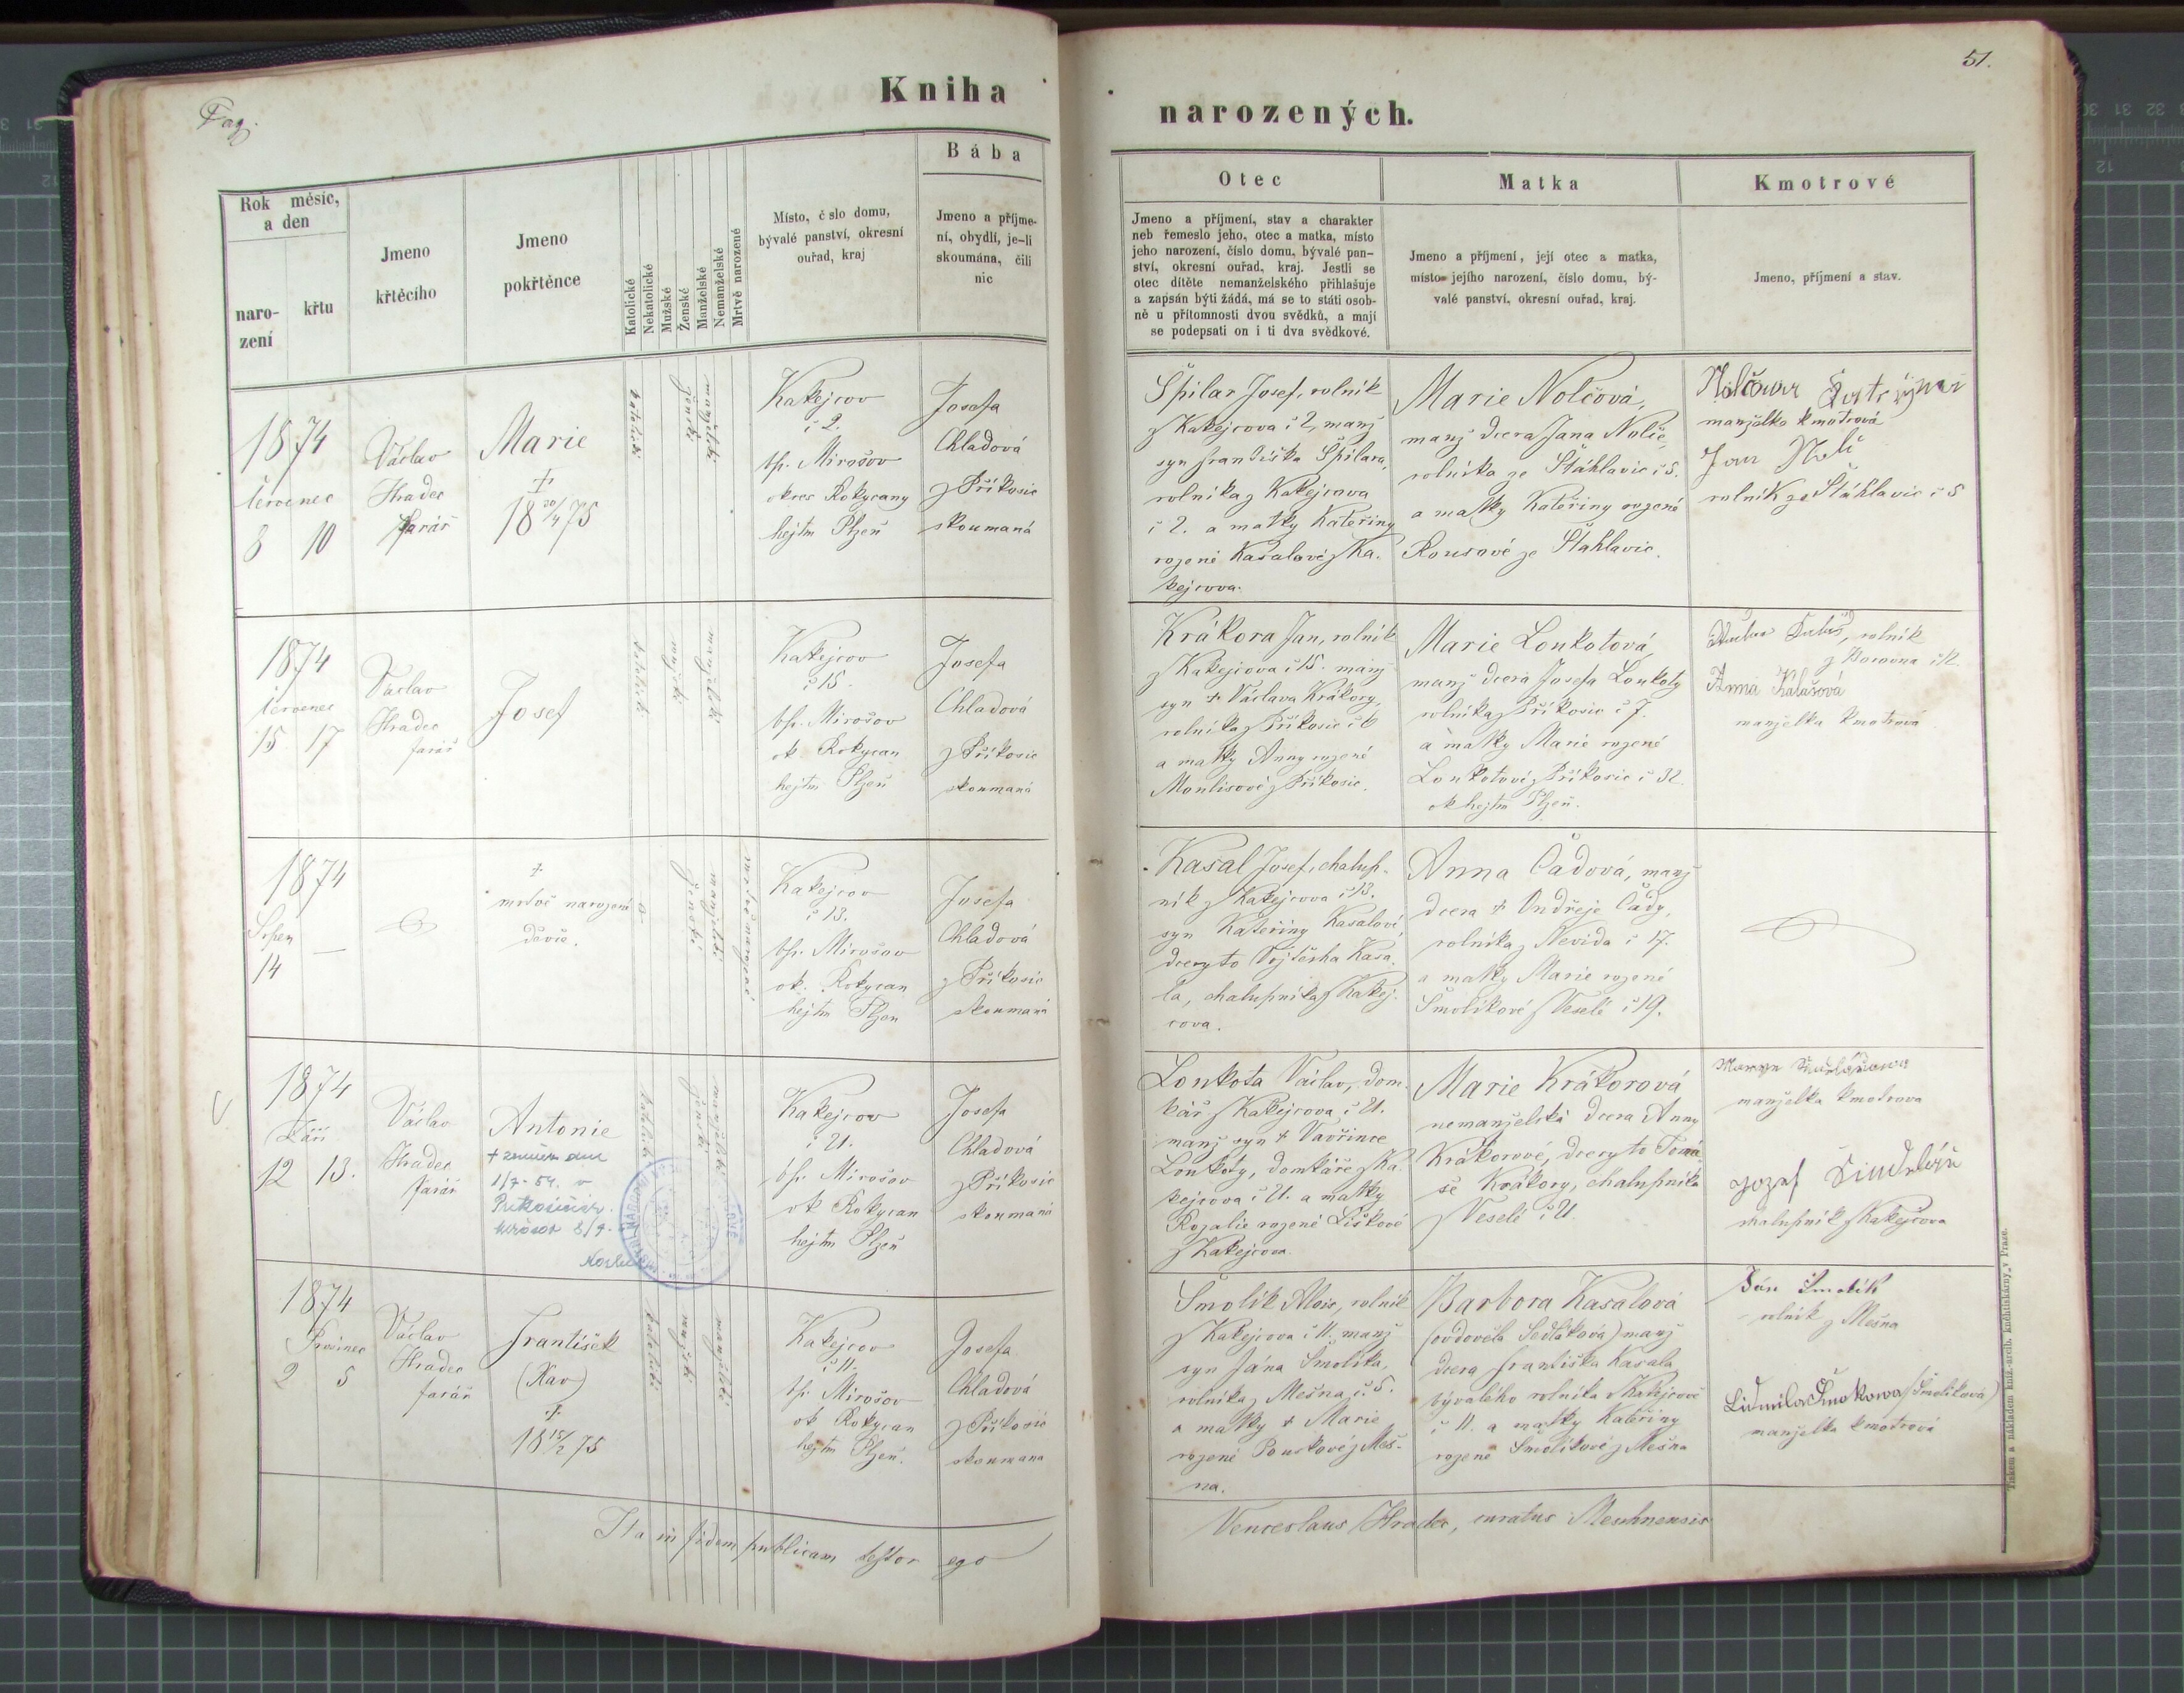 Pag.
Kniha
Rok měsíc,
a den
naro-
zení
křtu
Jmeno
křtěcího
Jmeno
pokřtěnce
Katolické
Nekatolické
Mužské
Ženské
Manželské
Nemanželské
Mrtvě narozené
Místo, č slo domu,
bývalé panství, okresní
ouřad, kraj
Bába
Jmeno a příjme-
ní, obydlí, je-li
skoumána, čili
nic
1874
červenec
8 10
Václav
Hradec
farář
Marie
†
18 20/4 75
katolické
ženské
manželské
Kakejcov
č 2.
bp. Mirošov
okres Rokycany
hejtm Plzeň
Josefa
Chladová
z Příkosic
skoumaná
1874
červenec
15 17
Václav
Hradec
farář
Josef
katolické
mužské
manželské
Kakejcov
č 15.
bp. Mirošov
ok Rokycan
hejtm Plzeň
Josefa
Chladová
z Příkosic
skoumaná
1874
Srpen
14 —
†
mrtvě narozené
děvče.
ženské
manželské
mrtvě narozené
Kakejcov
č 13.
bp. Mirošov
ok. Rokycan
hejtm Plzen
Josefa
Chladová
z Příkosic
skoumaná
1874
Září
12 13.
Václav
Hradec
farář
Antonie
1/7. 54. v
katolické
ženské
manželské
Kakejcov
č 21.
bp. Mirošov
ok Rokycan
hejtm Plzeň
Josefa
Chladová
z Příkosic
skoumaná
1874
Prosinec
2 5
Václav
Hradec
farář
František
(Xav)
†
18 15/2 75
katolické
mužské
manželské
Kakejcov
č 11.
bp. Mirošov
ok Rokycan
hejtm Plzeň.
Josefa
Chladová
z Příkosic
skoumana
Ita in fidem publicam testor ego
51.
narozených.
Otec
Jmeno a příjmení, stav a charakter
neb řemeslo jeho, otec a matka, místo
jeho narození, číslo domu, bývalé pan-
ství, okresní ouřad, kraj. Jestli se
otec dítěte nemanželského přihlašuje
a zapsán býti žádá, má se to státi osob-
ně u přítomnosti dvou svědků, a mají
se podepsati on i ti dva svědkové.
Matka
Jmeno a příjmení, její otec a matka,
místo jejího narození, číslo domu, bý-
valé panství, okresní ouřad, kraj.
Kmotrové
Jmeno, příjmení a stav.
Špilar Josef, rolník
z Kakejcova č 2, manž
syn Františka Špilara,
rolníka z Kakejcova
č 2. a matky Kateřiny
rozené Kasalové z Ka-
kejcova.
Marie Nolčová,
manž dcera Jana Nolče,
rolníka ze Šťahlavic č 5.
a matky Kateřiny rozené
Rousové ze Šťahlavic.
manželka kmotrová
Jan Nolč
rolník ze Šťáhlavic č 5
Krákora Jan, rolník
z Kakejcova č 15. manž
syn † Václava Krákory,
rolníka z Příkosic č 6
a matky Anny rozené
Moulisové z Příkosic.
Marie Loukotová,
manž dcera Josefa Loukoty
rolníka z Příkosic č 7.
a matky Marie rozené
Loukotové z Příkosic č 32.
ok hejtm Plzeň.
rolník
z Borovna č 12.
Anna Kalašová
manželka kmotrová
Kasal Josef, chalup-
ník z Kakejcova č 13.
syn Kateřiny Kasalové,
dcery to Vojtěcha Kasa-
la, chalupníka z Kakej-
cova.
Anna Čadová, manž
dcera † Ondřeje Čady,
rolníka z Nevida č 17.
a matky Marie rozené
Smolíkové z Veselé č 19.
Loukota Václav, dom-
kář z Kakejcova č 21.
manž syn † Vavřince
Loukoty, domkáře z Ka-
kejcova č 21. a matky
Rozalie rozené Liškové
z Kakejcova.
Marie Krákorová
nemanželská dcera Anny
Krákorové, dcery to Tomá-
še Krákory, chalupníka
z Veselé č 21
manželka kmotrova
Jozef Šindelář
chalupník z Kakejcova
Smolík Alois, rolník
z Kakejcova č 11. manž
syn Jána Smolíka,
rolníka z Mešna č 5.
a matky † Marie
rozené Pouskové z Meš-
na.
Barbora Kasalová
(ovdověla Sedláková) manž
dcera Františka Kasala
bývalého rolníka z Kakejcova
č 11. a matky Kateřiny
rozené Smolíkové z Mešna
Ján Smolík
rolník z Mešna
(Smolíková)
manželka kmotrová
Venceslaus Hradec, curatus Meschnensis
Tiskem a nákladem kníž.-arcib. knihtiskárny v Praze.